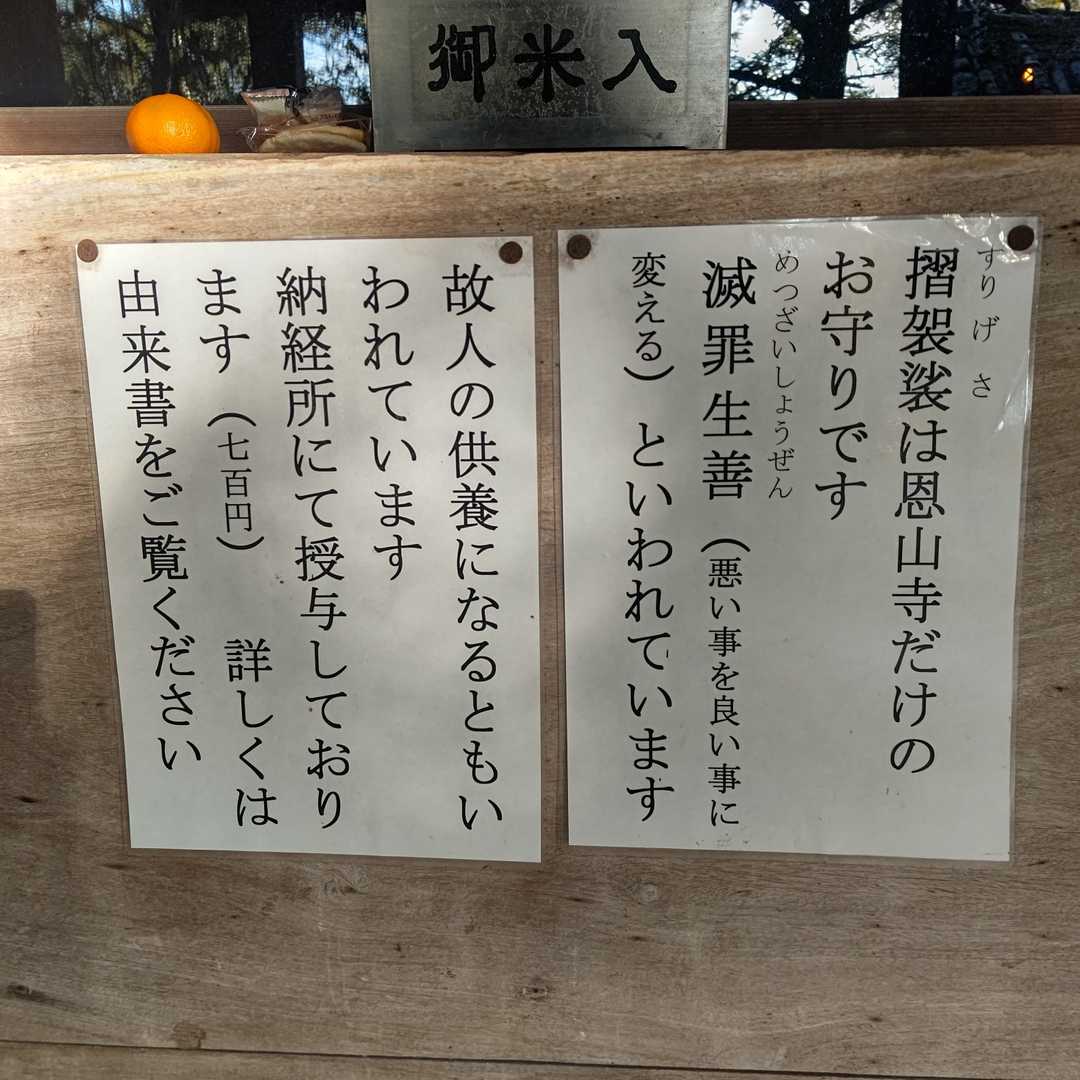 御米入
すりげさ
摺袈裟は恩山寺だけの
お守りです
めつざいしょうぜん
滅罪生善（悪い事を良い事に
変える）といわれています
故人の供養になるともい
われています
納経所にて授与しており
ます（七百円）　詳しくは
由来書をご覧ください